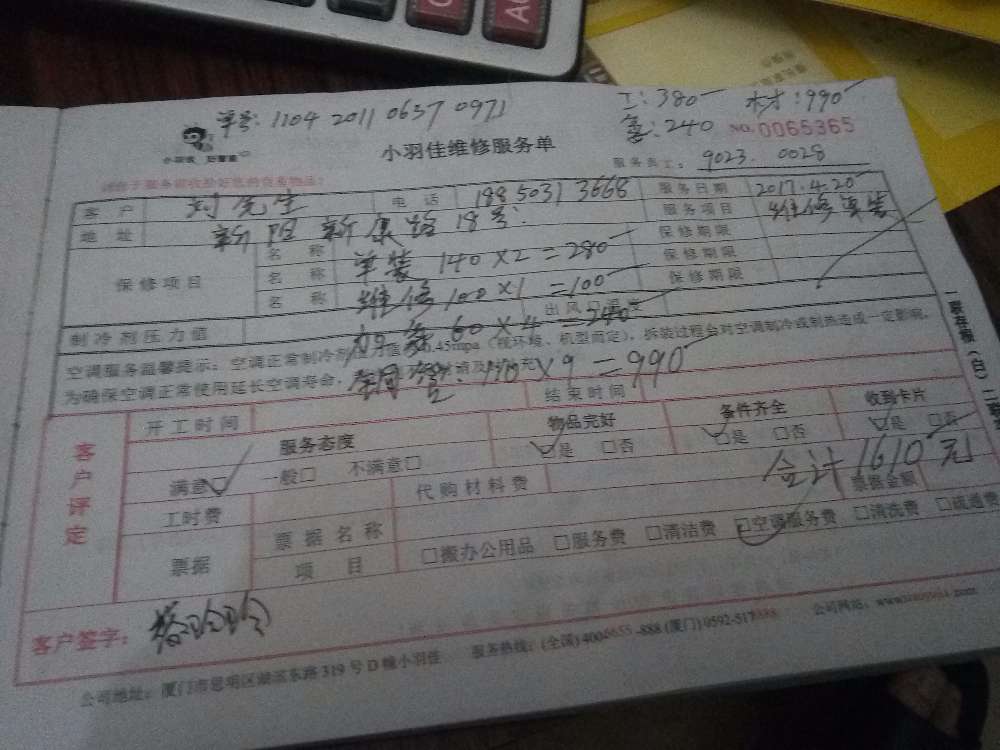 单号: 1104 2011 0637 0971
工: 380 材: 990
氟: 240 NO. 0065365
小羽佳维修服务单
服务员工: 9023. 0028
客户 刘先生 电话 188 5031 3668 服务日期 2017.4.20
地址 新阳新康路18号 服务项目 维修单装
保修项目 名称 单装 140×2=280 保修期限
名称 维修 100×1=100 保修期限
名称 加氟 60×4=240 保修期限
制冷剂压力值 出风口温度
空调服务温馨提示: 空调正常制冷剂压力值 0.45mpa (视环境、机型而定), 拆装过程会对空调制冷或制热造成一定影响,
为确保空调正常使用延长空调寿命,
铜管: 110×9=990
开工时间 结束时间
客户评定
服务态度 物品完好 备件齐全 收到卡片
满意☑ 一般□ 不满意□ ☑是 □否 ☑是 □否 ☑是 □否
合计1610元
工时费 代购材料费 票据金额
票据 票据名称
项目 □搬办公用品 □服务费 □清洁费 ☑空调服务费 □清洗费 □疏通费
客户签字:
公司地址: 厦门市思明区湖滨东路319号D幢小羽佳 服务热线: (全国) 4000655-888 (厦门) 0592-517 公司网站: